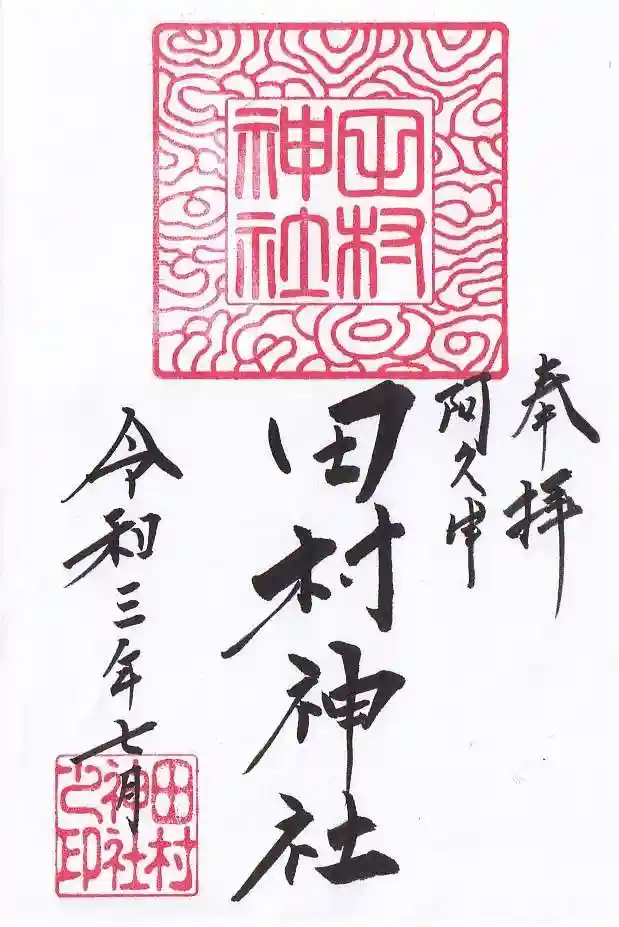 奉拝
阿久津
田村神社
令和三年七月
田村
神社
田村
神社
之印